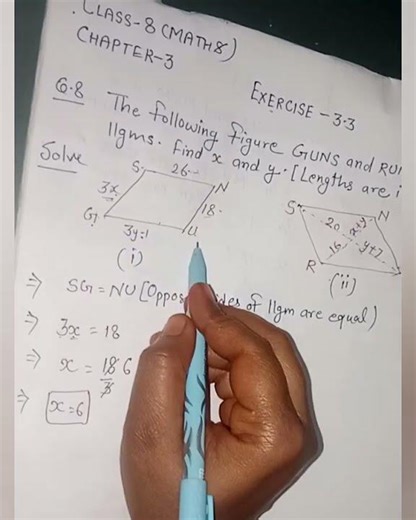 CLASS-8 (MATHS)
CHAPTER-3
EXERCISE - 3.3
Q.8 The following figure GUNS and RUN
llgms. Find x and y. [Lengths are i
Solve
S 26 N
3x 18
G 3y-1 U
(i)
S N
20 x+y
16 y+7
R
(ii)
⇒ SG = NU [Oppos ides of llgm are equal)
⇒ 3x = 18
⇒ x = 18 6
3
⇒ x = 6